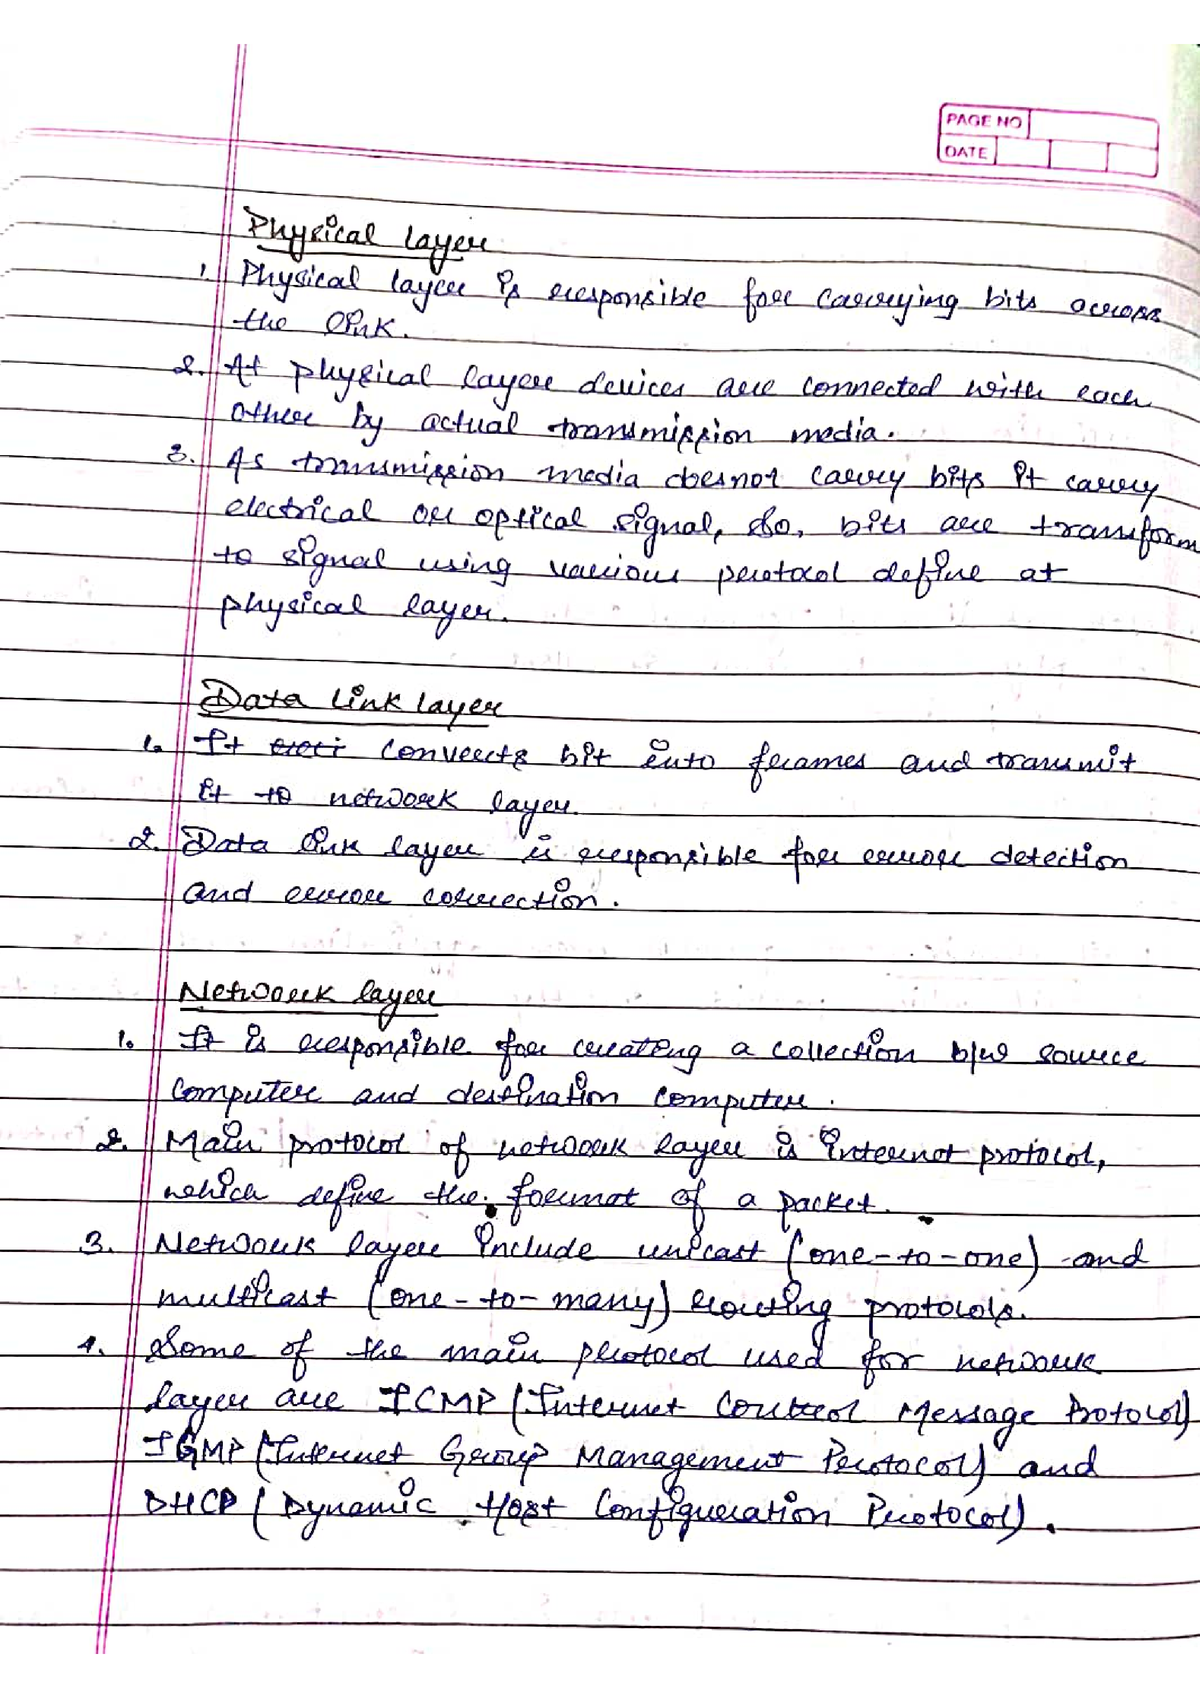 PAGE NO
DATE
Physical layer
1. Physical layer is responsible for carrying bits across
the link.
2. At physical layer devices are connected with each
other by actual transmission media.
3. As transmission media doesnot carry bits it carry
electrical or optical signal, So, bits are transform
to signal using various protocol define at
physical layer.
Data link layer
1. It converts bit into frames and transmit
it to network layer.
2. Data link layer is responsible for error detection
and error correction.
Network layer
1. It is responsible for creating a collection b/w source
computer and destination computer.
2. Main protocol of network layer is internet protocol,
which define the format of a packet.
3. Network layer include unicast (one-to-one) and
multicast (one-to-many) routing protocols.
4. Some of the main protocol used for network
layer are ICMP (Internet Control Message Protocol)
IGMP (Internet Group Management Protocol) and
DHCP (Dynamic Host Configuration Protocol).